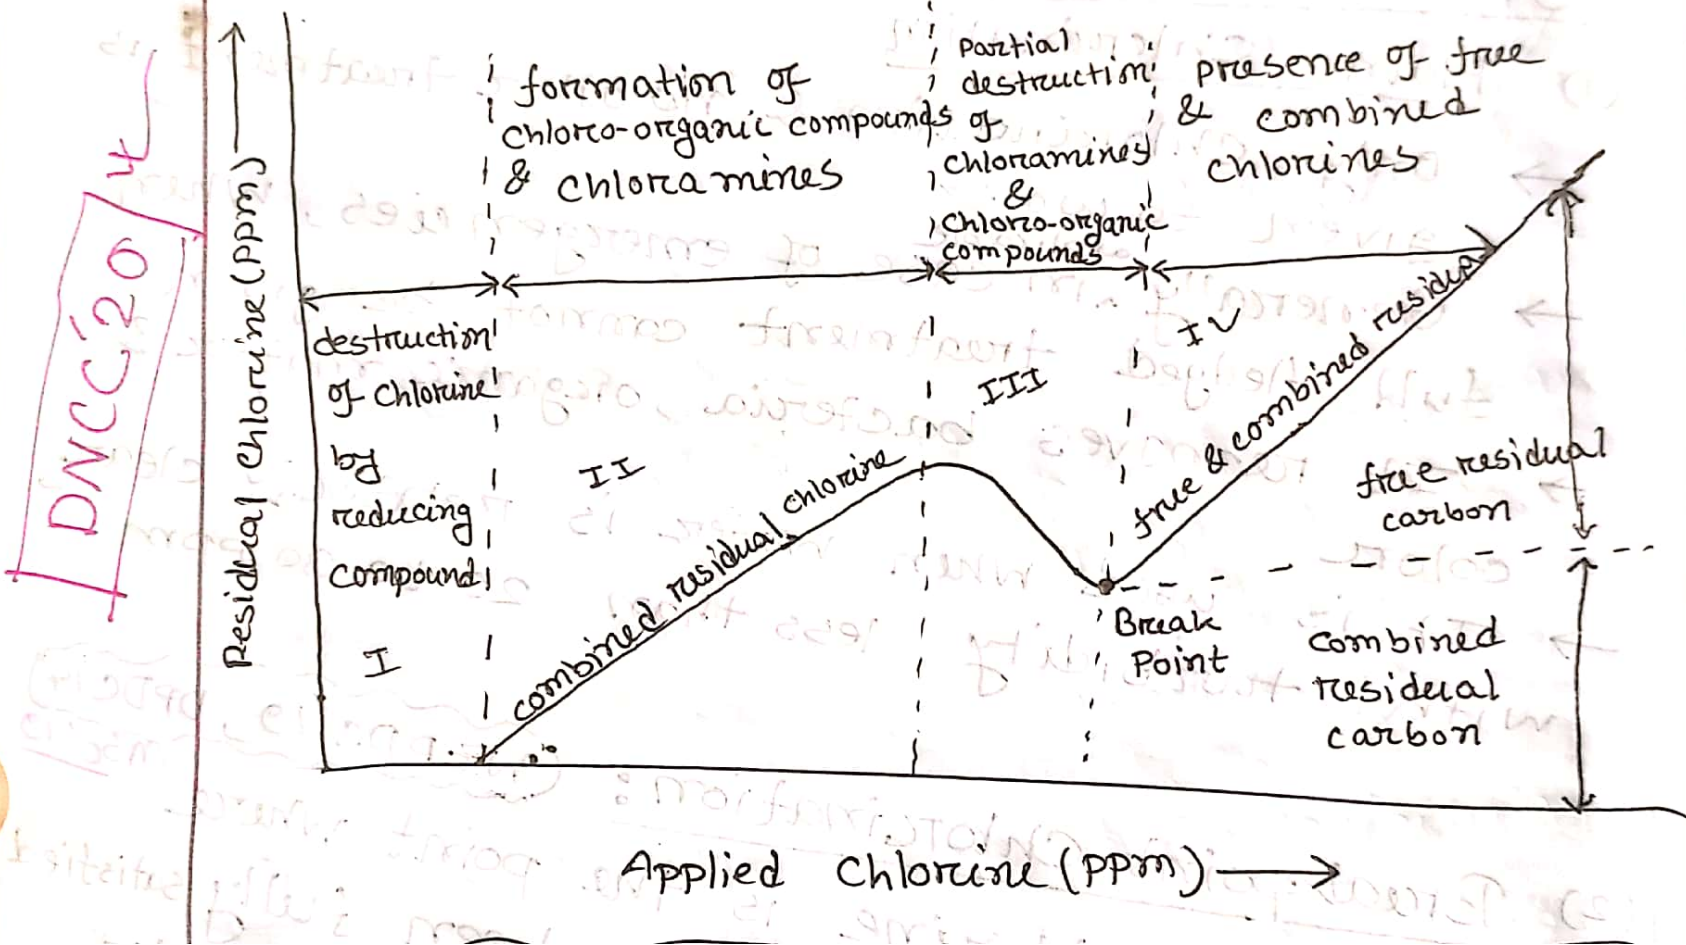 DNCC'20
Residual Chlorine (ppm)
formation of
chloro-organic compounds
& chloramines
partial
destruction
of
chloramines
&
chloro-organic
compounds
presence of free
& combined
chlorines
destruction
of chlorine
by
reducing
compound
I
II
III
IV
combined residual chlorine
free & combined residual
free residual
carbon
Break
Point
combined
residual
carbon
Applied Chlorine (ppm)